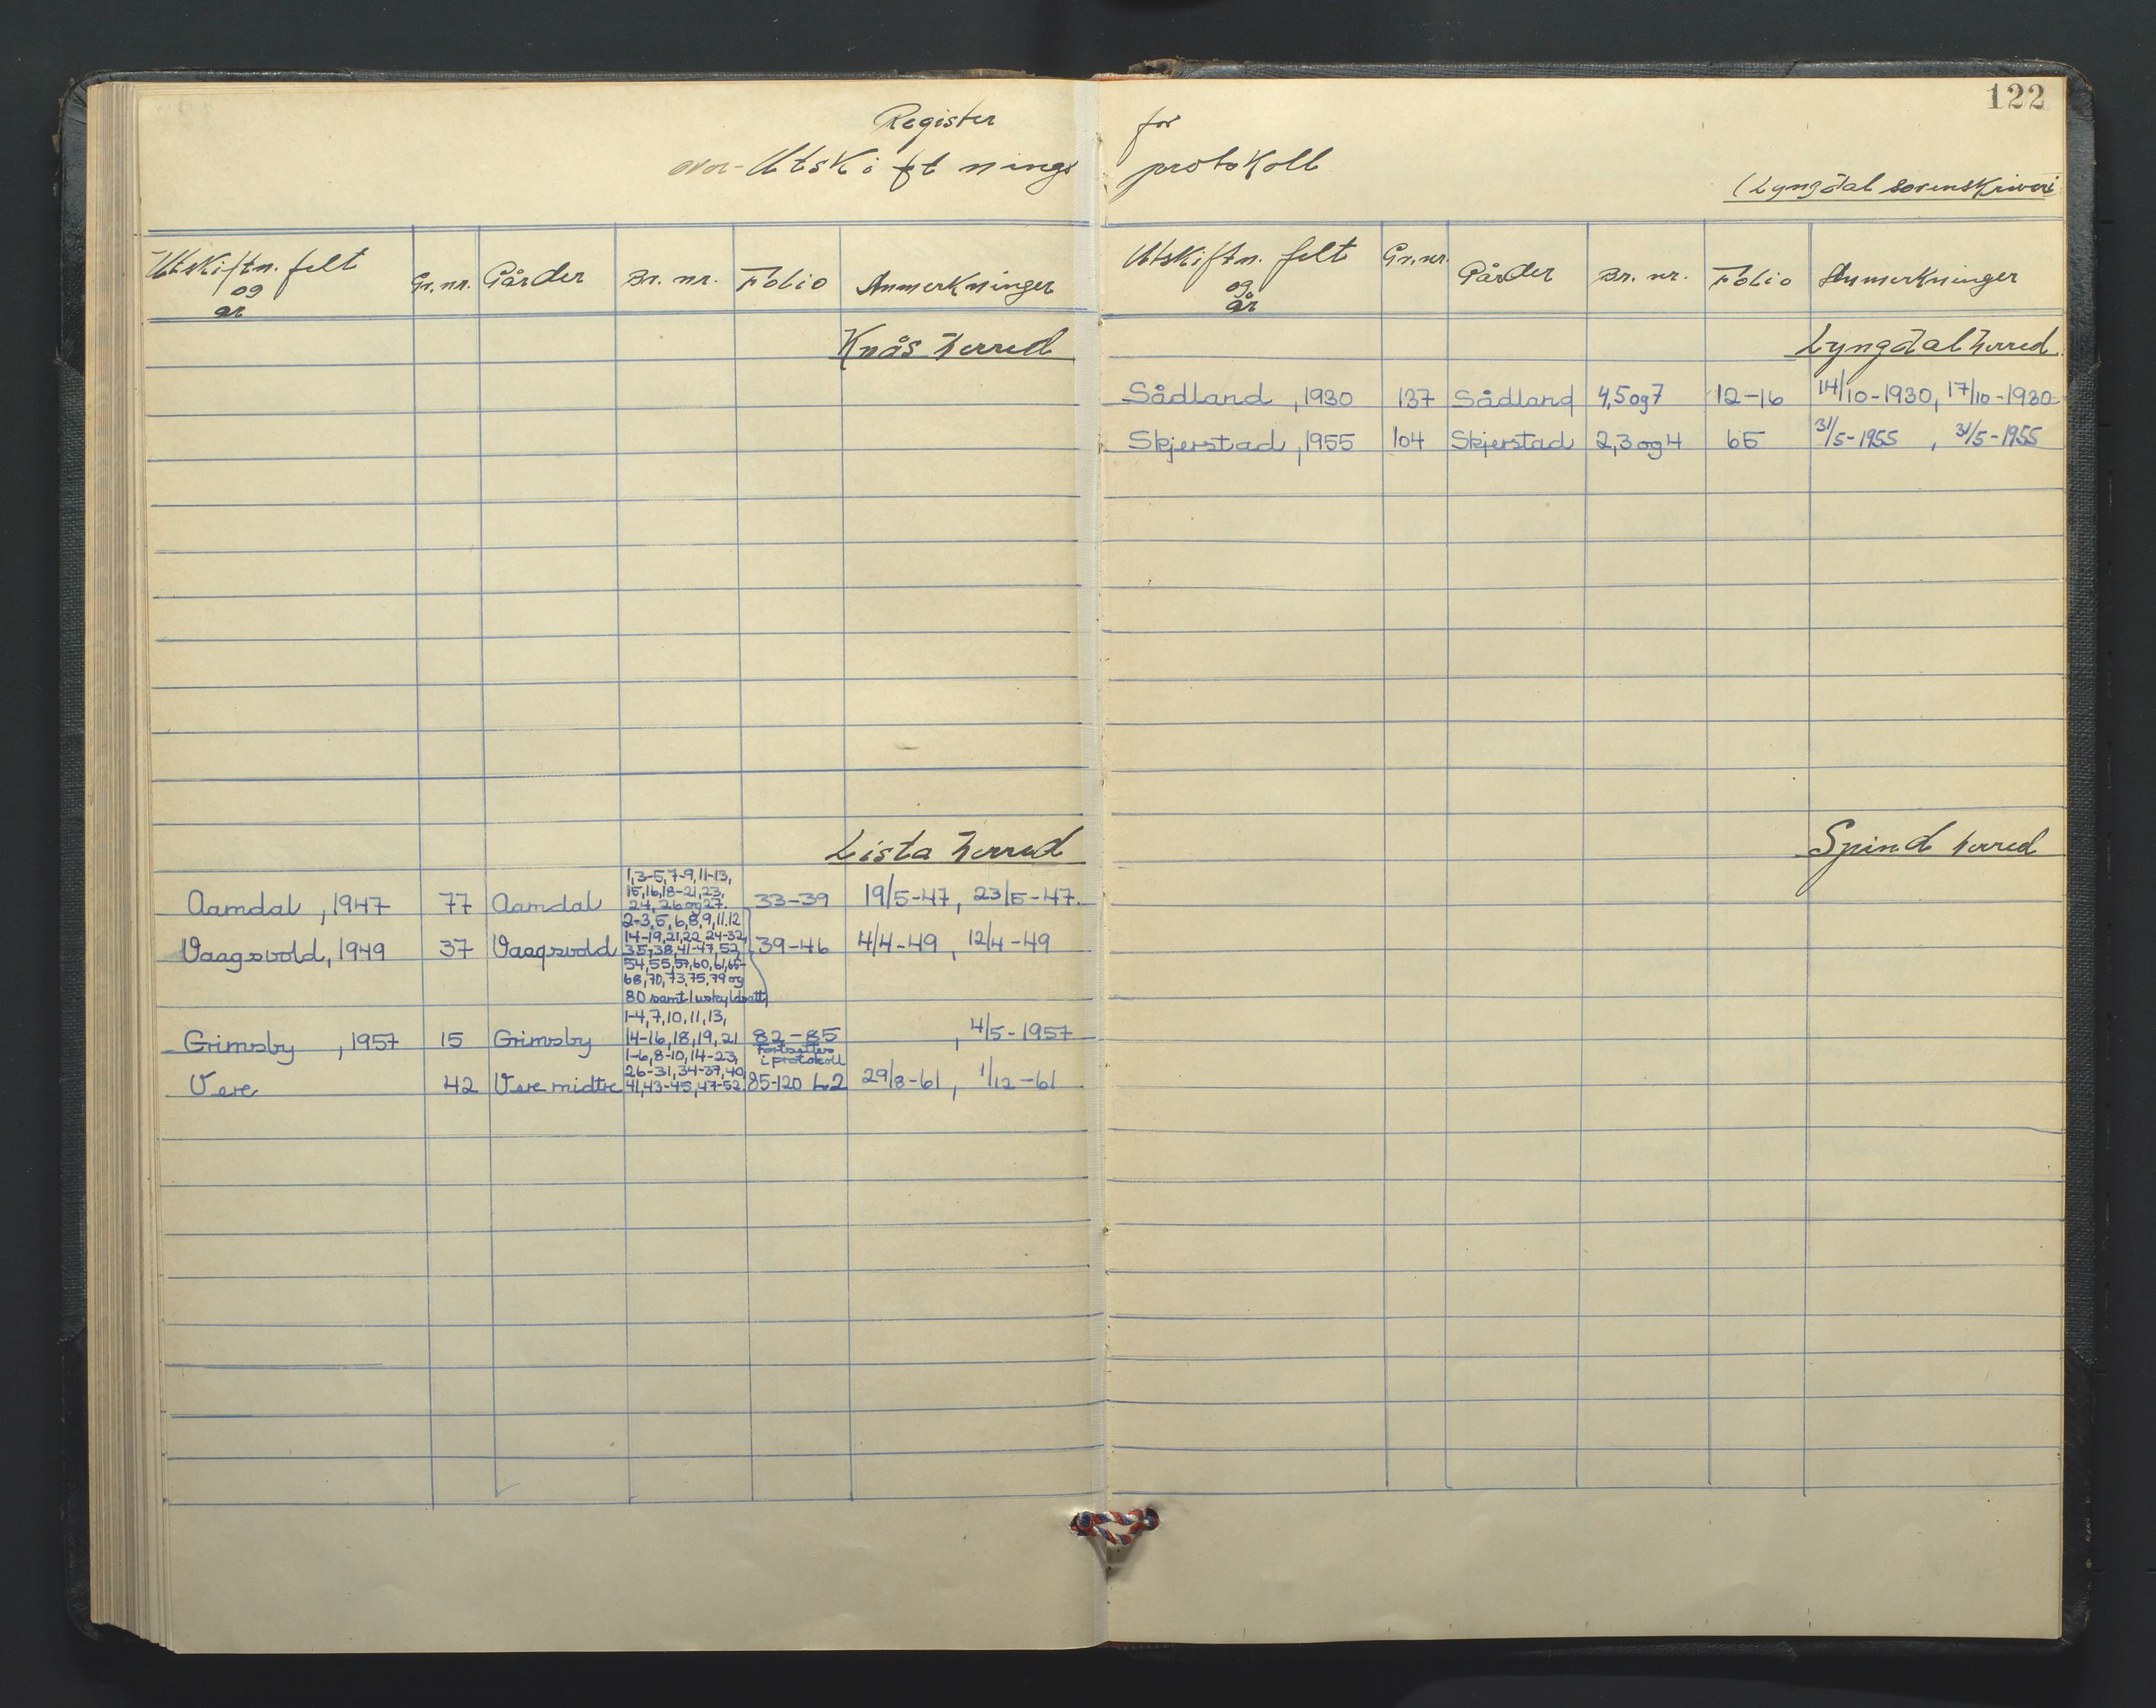 122
Register for
over Utskiftnings protokoll
(Lyngdal sorenskriveri
Utskiftn. felt og år Gr.nr. Gårder Br. nr. Folio Anmerkninger
Knås herred
Lista herred
1,3-5,7-9,11-13,
15,16,18-21,23,
Aamdal, 1947 77 Aamdal 24, 26 og 27. 33-39 19/5-47, 23/5-47.
2-3,5,6,8,9,11,12
14-19,21,22,24-32,
Vaagsvold, 1949 37 Vaagsvold 35,38,41-47,52, 39-46 4/4-49, 12/4-49
54,55,57,60,61,65-
68,70,73,75,79 og
80 samt 1 uskyldsatt
1-4,7,10,11,13,
Grimsby, 1957 15 Grimsby 14-16,18,19,21 82-85 , 4/5-1957
1-6,8-10,14-23, Fortsettes
26-31,34-37,40, i protokoll
Vere 42 Vere midtre 41,43-45,47-52. 85-120 L2 29/8-61, 1/12-61
Utskiftn. felt og år Gr.nr. Gårder Br. nr. Folio Anmerkninger
Lyngdal herred.
Sådland, 1930 137 Sådland 4,5 og 7 12-16 14/10-1930, 17/10-1930.
Skjerstad, 1955 104 Skjerstad 2,3 og 4 65 31/5-1955, 31/5-1955
Spind herred